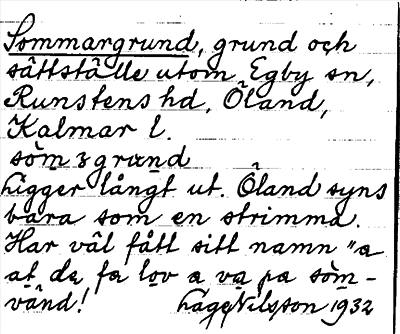 Sommargrund, grund och
sättställe utom Egby sn,
Runstens hd, Öland,
Kalmar l.
sòmɜgrɯnd
Ligger långt ut. Öland syns
bara som en strimma.
Har väl fått sitt namn "a
at de fa lov a va pa som-
vänd! Åge Nilsson 1932